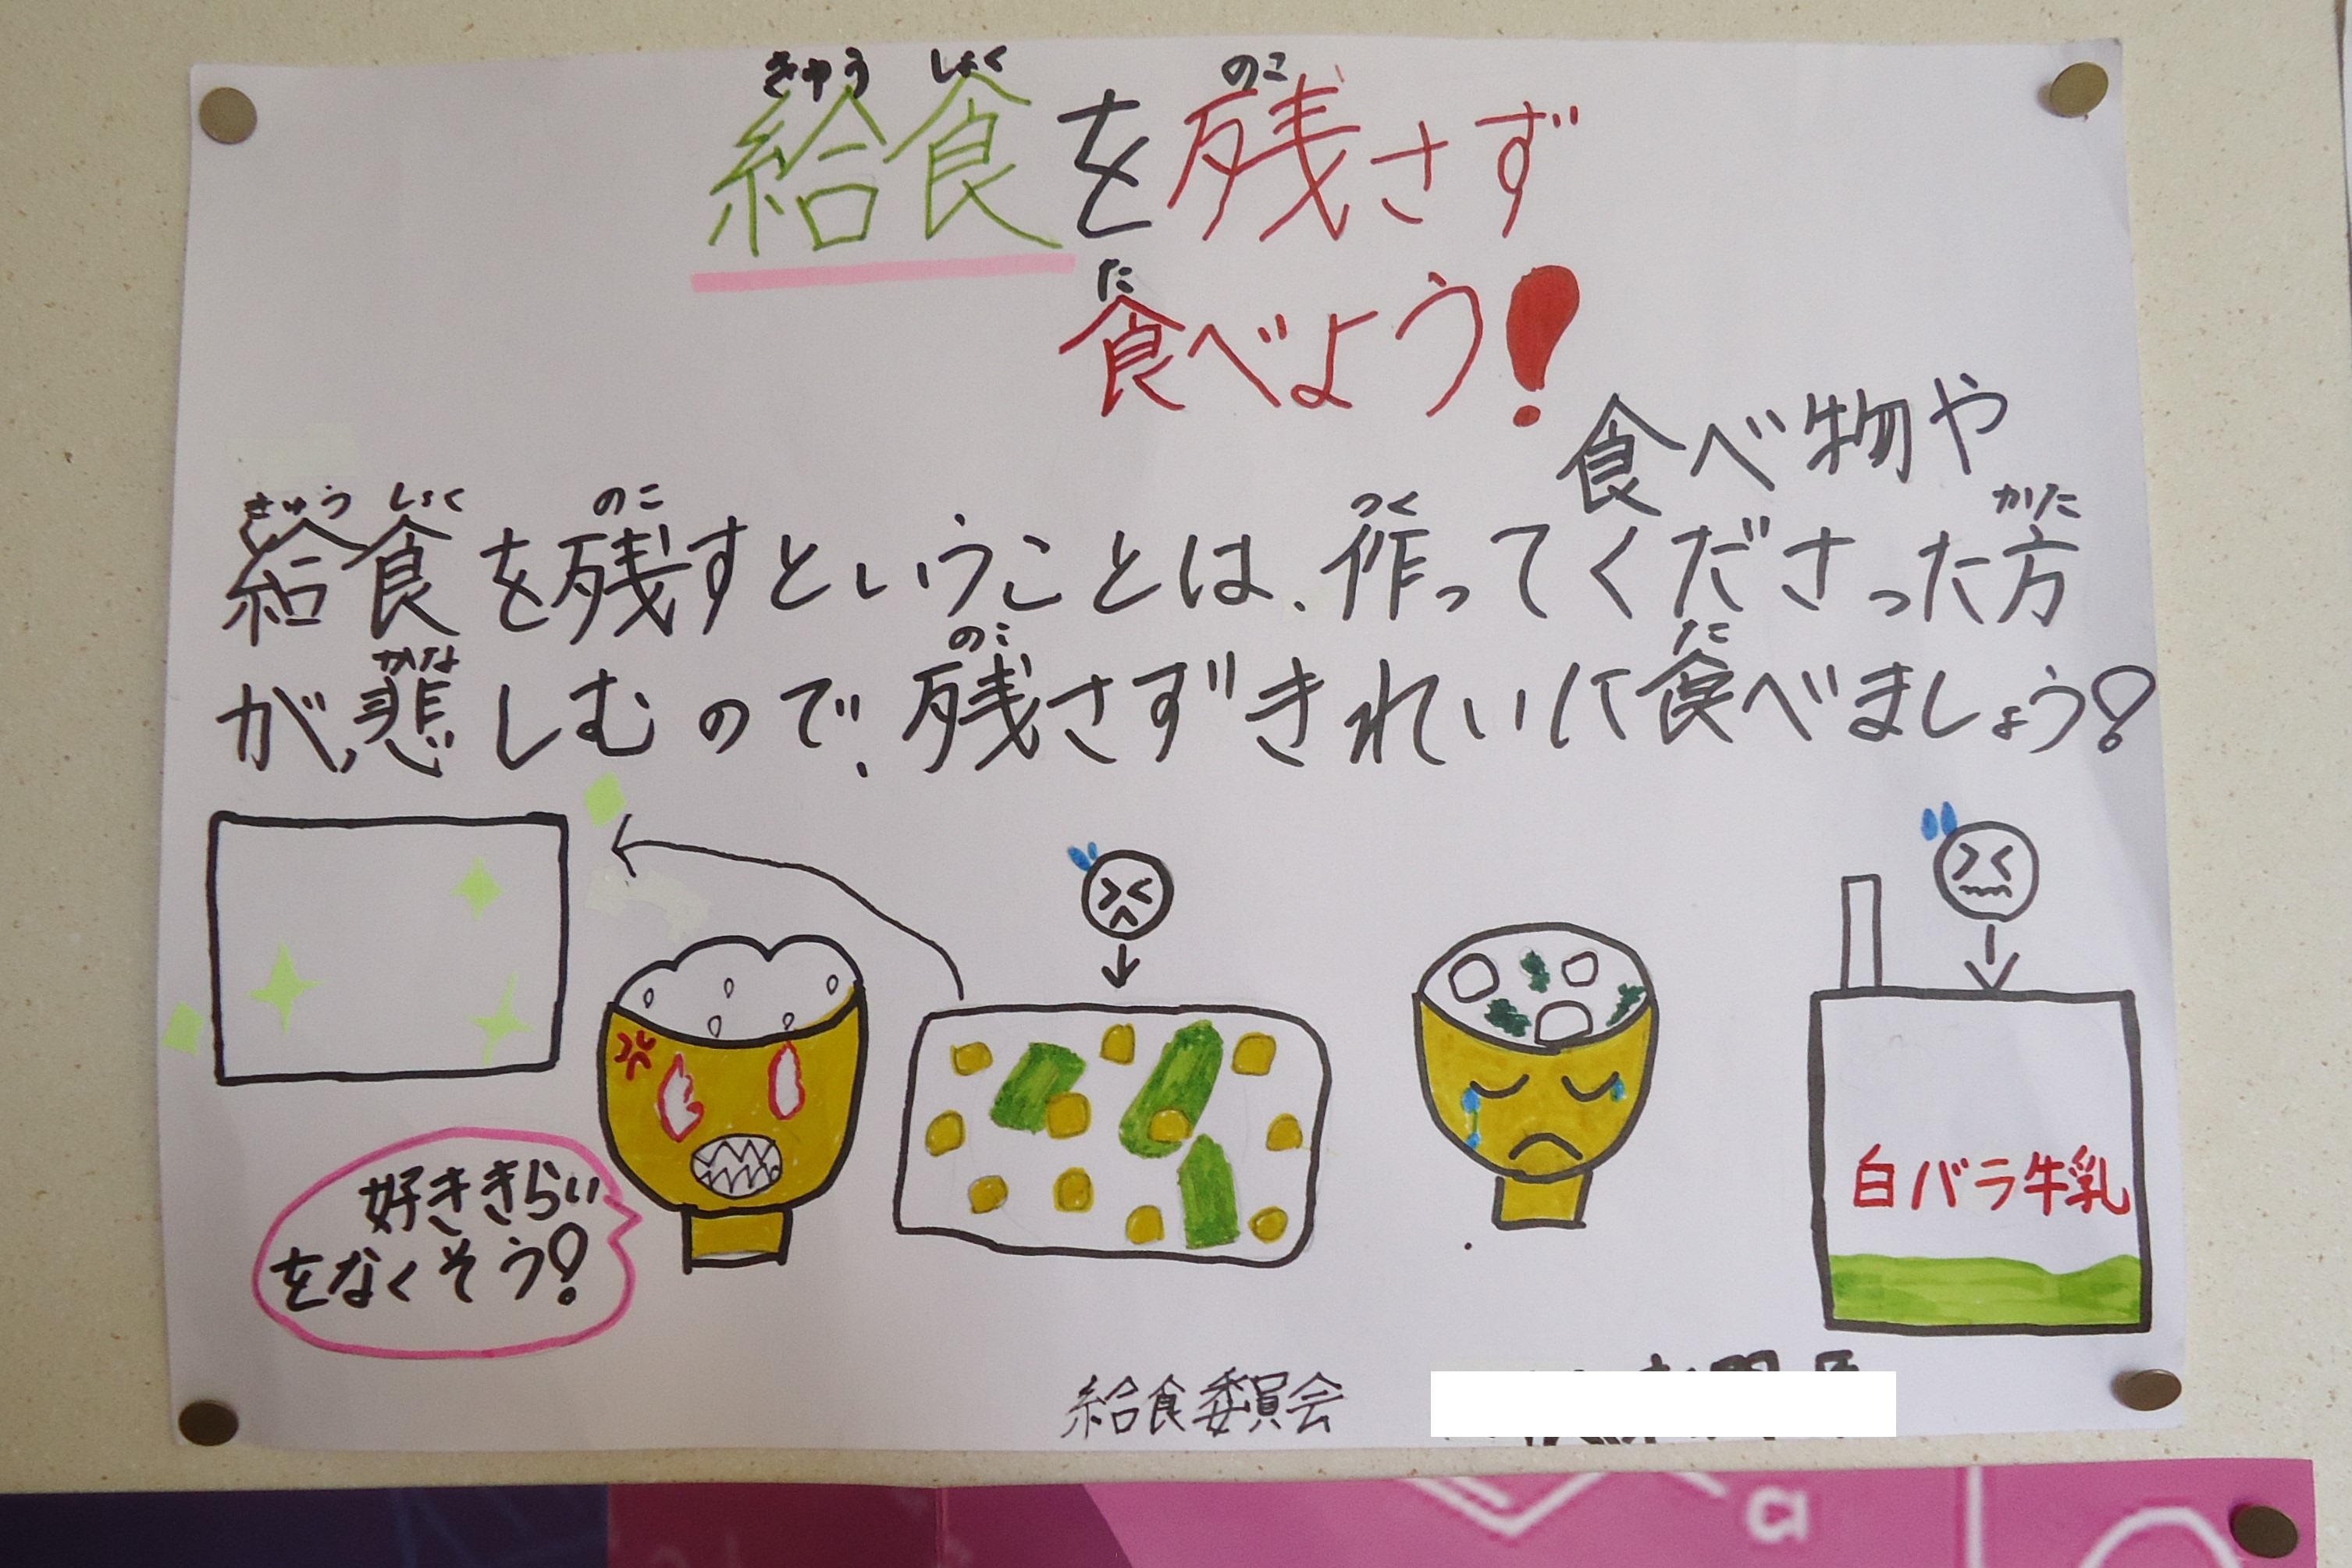 きゅう しょく のこ
給食を残さず
た
食べよう!
食べ物や
きゅう しょく のこ つく かた
給食を残すということは、作ってくださった方
かな のこ た
が、悲しむので、残さずきれいに食べましょう!
好ききらい
をなくそう!
白バラ牛乳
給食委員会
a